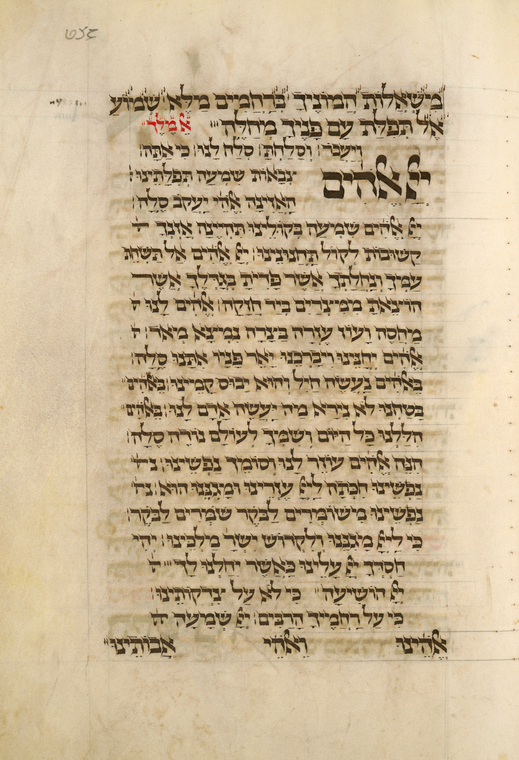 מִשְׁאֲלוֹת הֲמוֹנֶיךָ בְּרַחֲמִים מַלֵּא׃ שְׁמוֹעַ
אֶל תְּפִלַּת עַם פָּנֶיךָ מְחַלֶּה׃ אל מלך
ויעבר׳ וסלחת׳ סלח לנו׳ כי אתה׳
יי אלהים צבאות שמעה תפלתינו׳
האזינה אלהי יעקב סלה׳
יי אלהים שמיעה בקולינו תהיינה אזנך
קשובות לקול תחנונינו׳ יי אלהים אל תשחת
עמיך ונחלתך אשר פדית בגדלך אשר
הוצאת ממצרים ביד חזקה׳ אלהים לנו
מחסה ועוז עזרה בצרה נמצא מאד׳
אלהים יחנינו ויברכנו יאר פניו אתנו סלה׳
באלהים נעשה חיל והוא יבוס קמינו׳ באלהים
בטחנו לא נירא מה יעשה אדם לנו׳ באלהים
הללנו כל היום ושמך לעולם נודה סלה׳
הנה אלהים עוזר לנו וסומך נפשינו׳
נפשינו חכתה ליי עזרינו ומגננו הוא׳
נפשינו משומרים לבקר שמרים לבקר׳
כי ליי מגננו ולקדוש ישר׳ מלכינו׳ יהי
חסדך יי עלינו כאשר יחלנו לך׳
יי הושיעה כי לא על צדקותינו׳
כי על רחמיך הרבים׳ יי שמעה
אלהינו ואלהי אבותינו